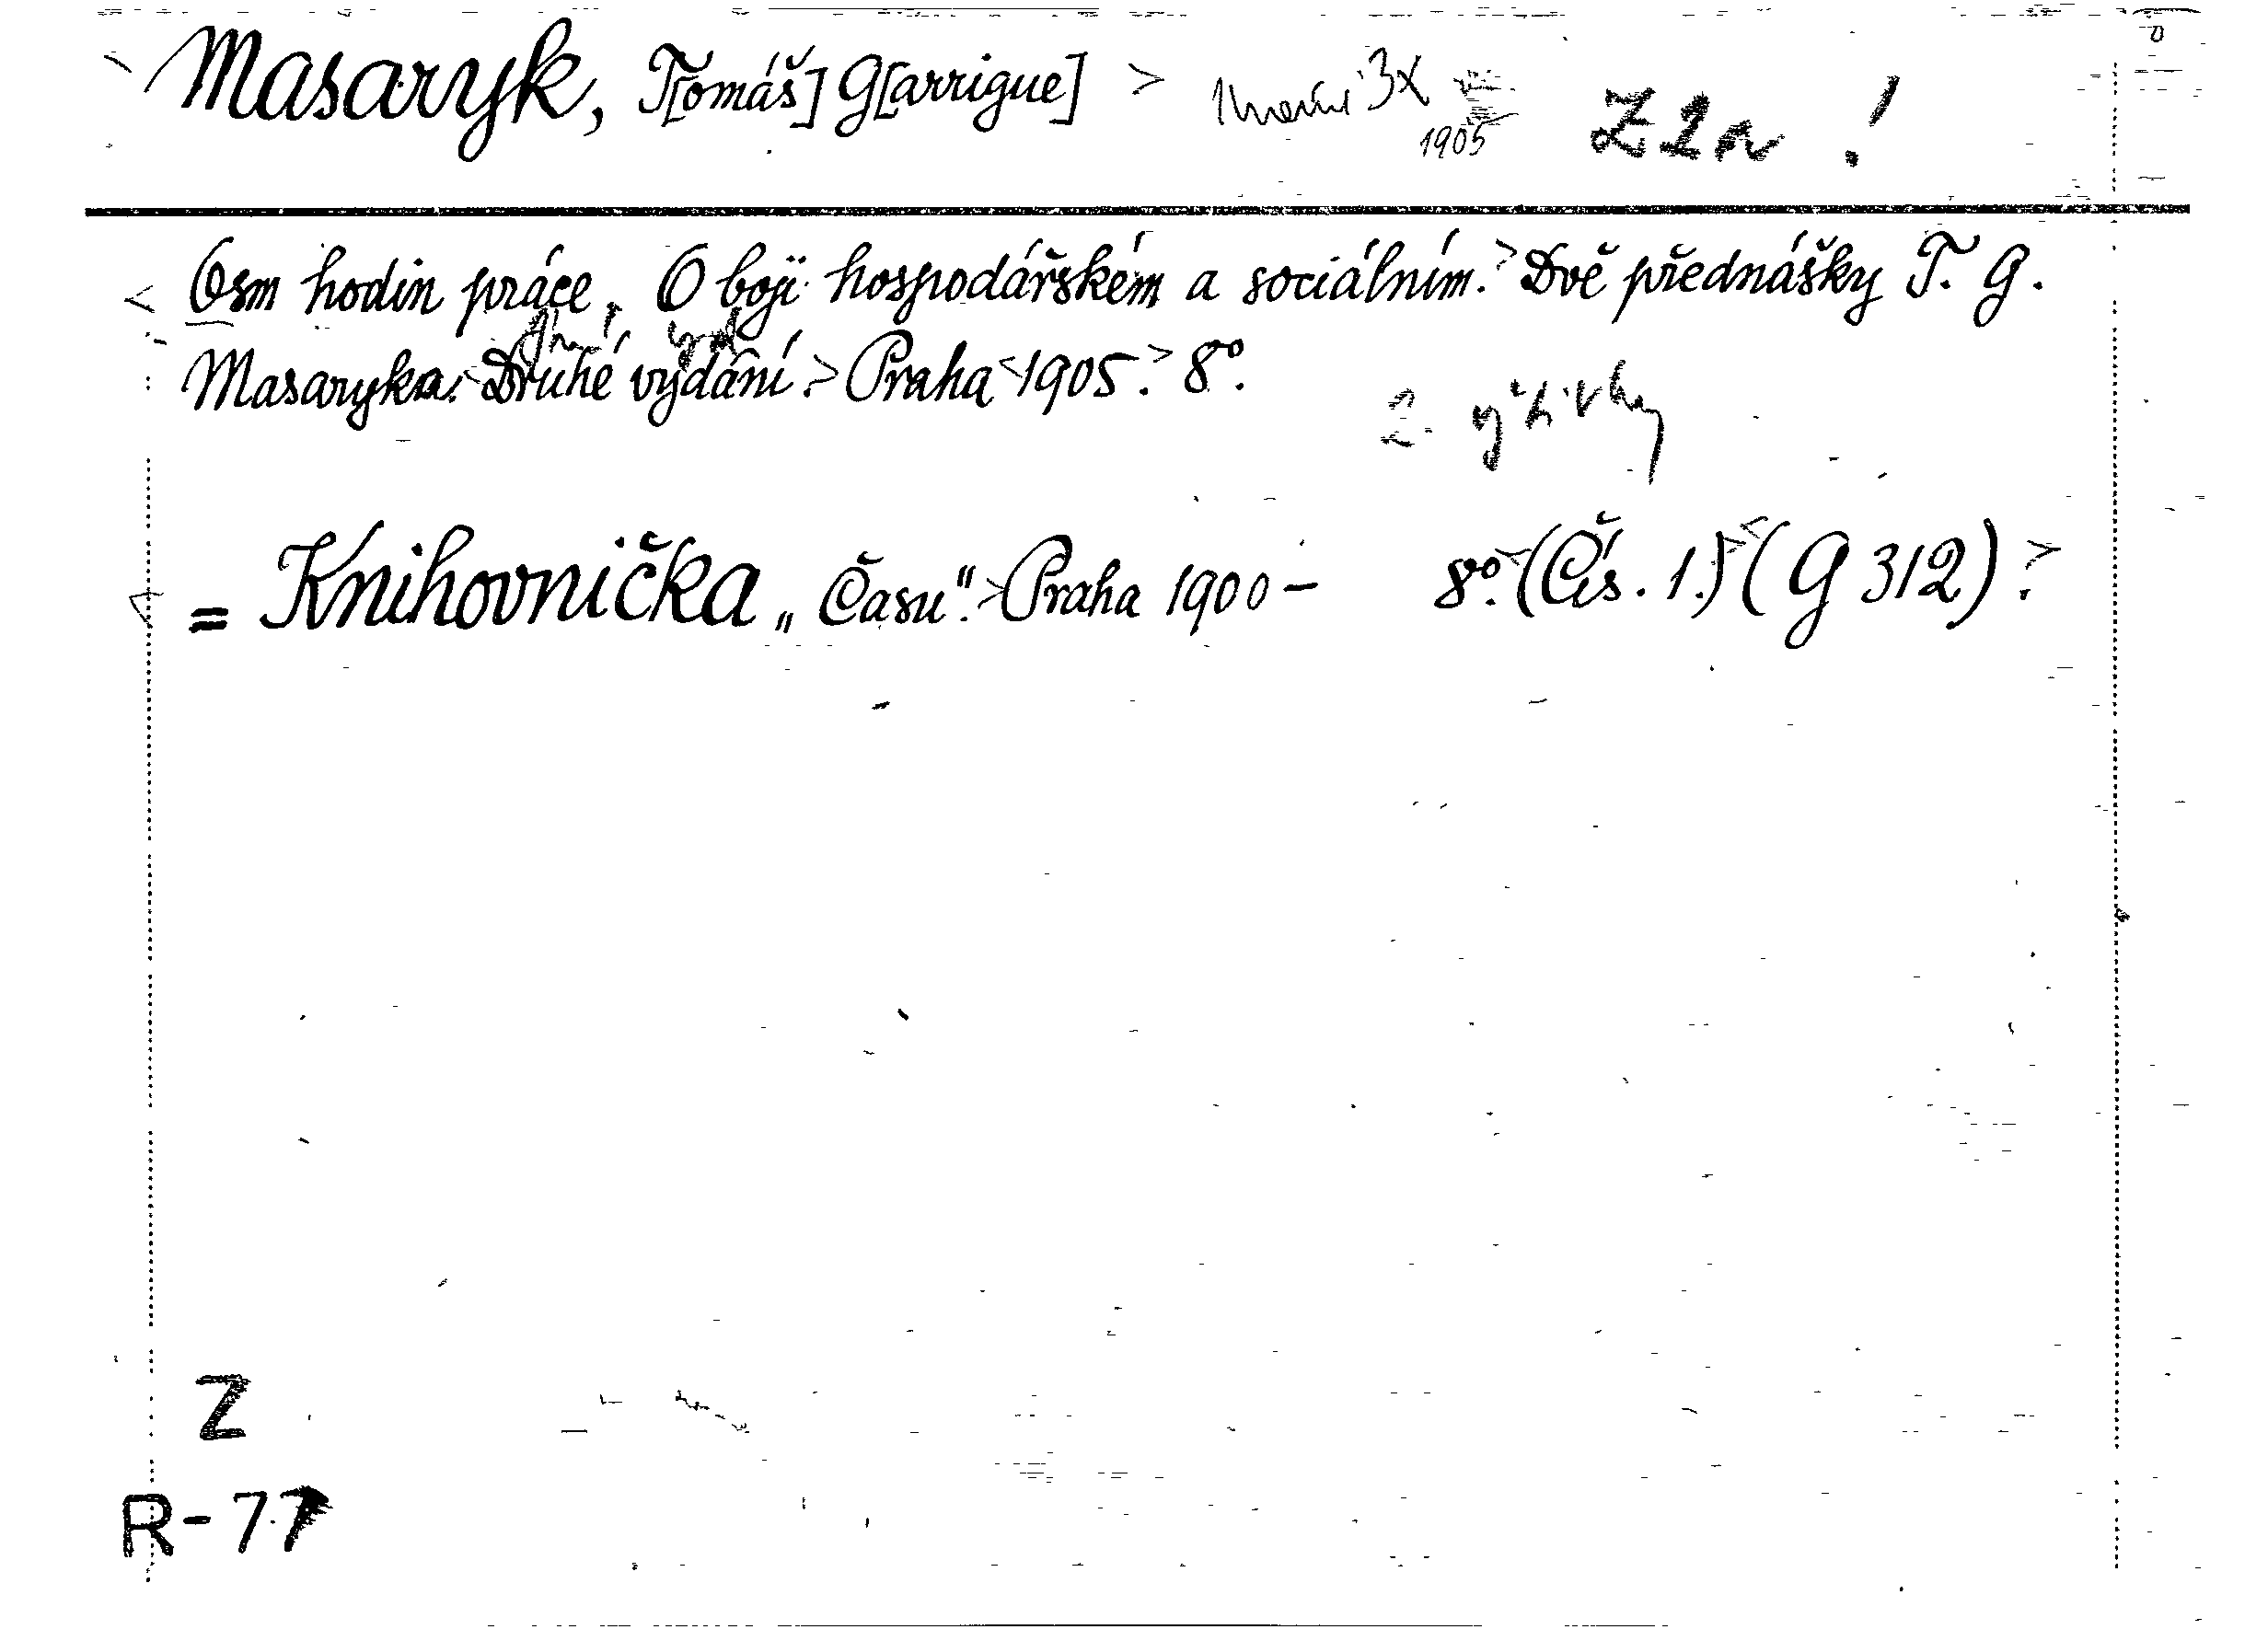 Masaryk, T[omáš] G[arrigue] > 3x Z 2a !
1905
< Osm hodin práce. O boji hospodářském a sociálním. > Dvě přednášky T. G.
Masaryka. < Druhé vydání. > Praha < 1905. > 8°.
2. výtisky
< = Knihovnička „Času“. > Praha 1900 – 8°. < (Čís. 1.) > < (G 312). >
Z
R-77